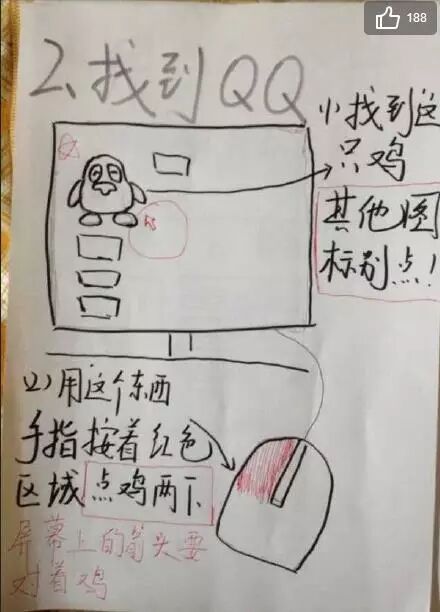 188
2、找到QQ
1)找到这
只鸡
其他图
标别点！
2)用这个东西
手指按着红色
区域点鸡两下
屏幕上的箭头要
对着鸡